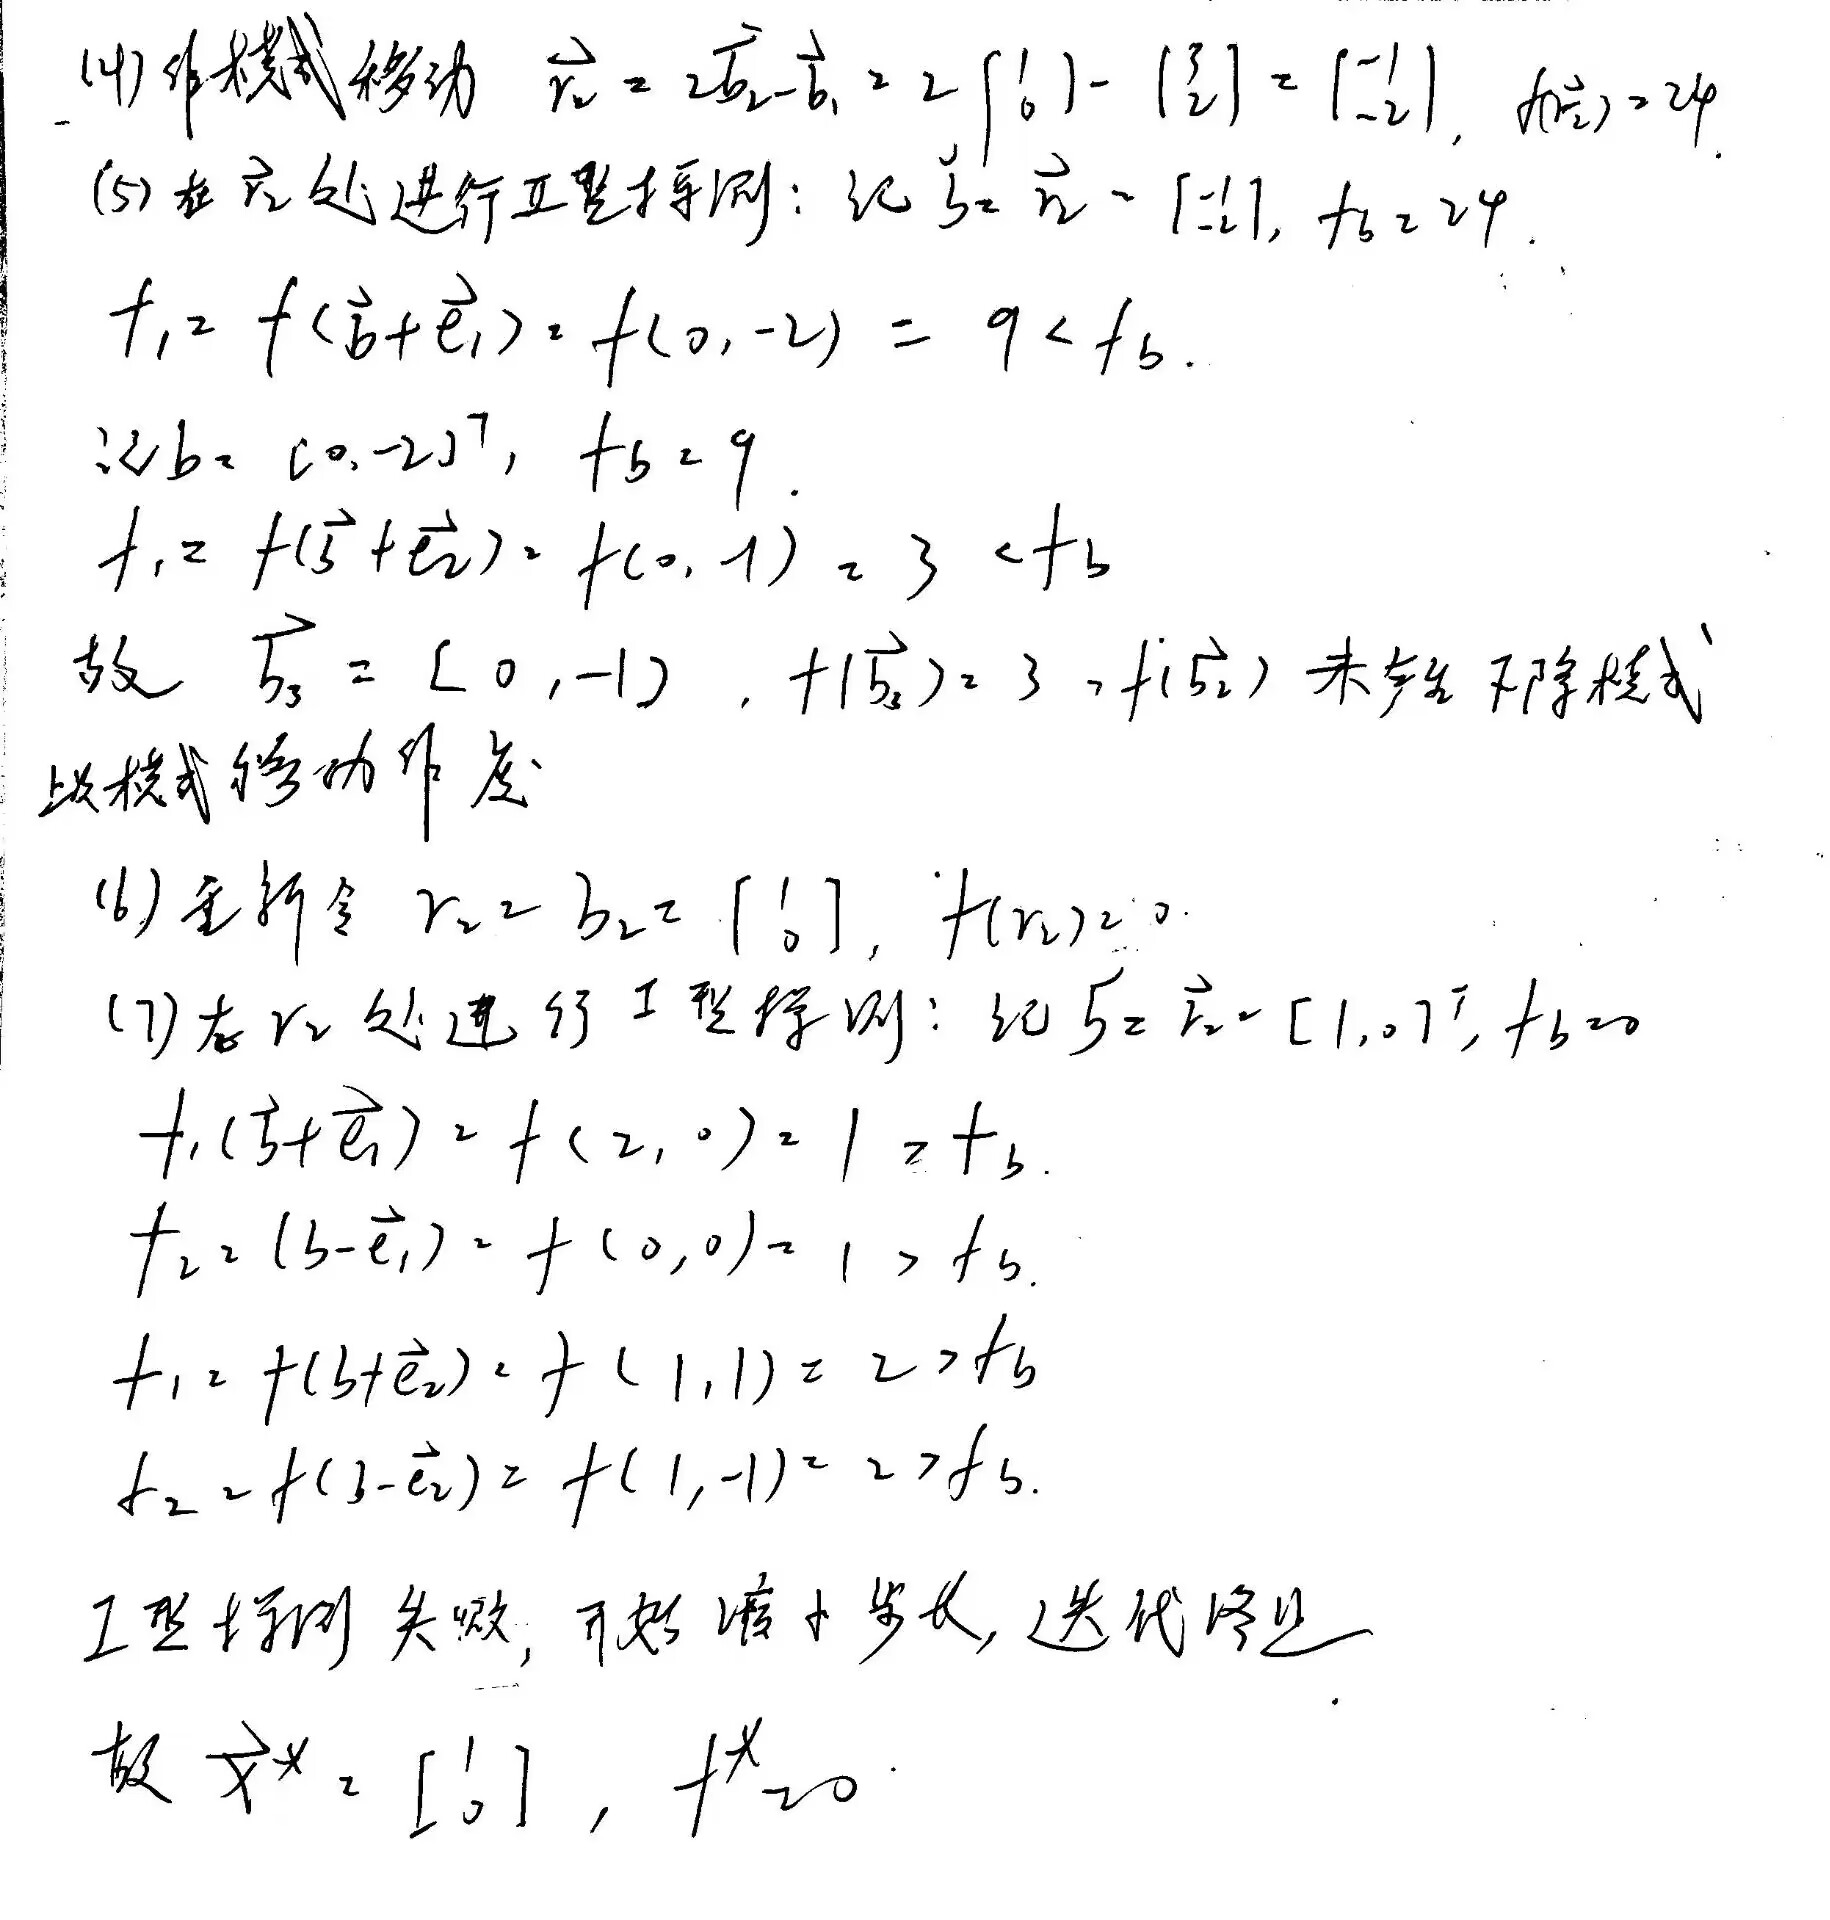 (4) 作模式移动 r⃗₂ = 2b⃗₂-b⃗₁ = 2[1 0] - [3 2] = [-1 -2], f(r⃗₂) = 24.
(5) 在 r⃗₂ 处进行II型探测: 记 b⃗ = r⃗₂ = [-1 -2], f_b = 24.
f₁ = f(b⃗+e⃗₁) = f(0,-2) = 9 < f_b.
记 b = [0,-2]ᵀ, f_b = 9.
f₁ = f(b⃗+e⃗₂) = f(0,-1) = 3 < f_b
故 b⃗₃ = [0,-1), f(b⃗₃) = 3 > f(b⃗₂) 未产生下降模式
上次模式移动作废
(6) 重新令 r₂ = b₂ = [1 0], f(r₂) = 0.
(7) 在 r₂ 处进行I型探测: 记 b = r⃗₂ = [1,0]ᵀ, f_b = 0
f₁(b⃗+e⃗₁) = f(2,0) = 1 = f_b.
f₂ = (b-e⃗₁) = f(0,0) = 1 > f_b.
f₁ = f(b+e⃗₂) = f(1,1) = 2 > f_b
f₂ = f(b-e⃗₂) = f(1,-1) = 2 > f_b.
I型探测失败, 开始 小步长, 迭代终止
故 x⃗* = [1 0], f* = 0.